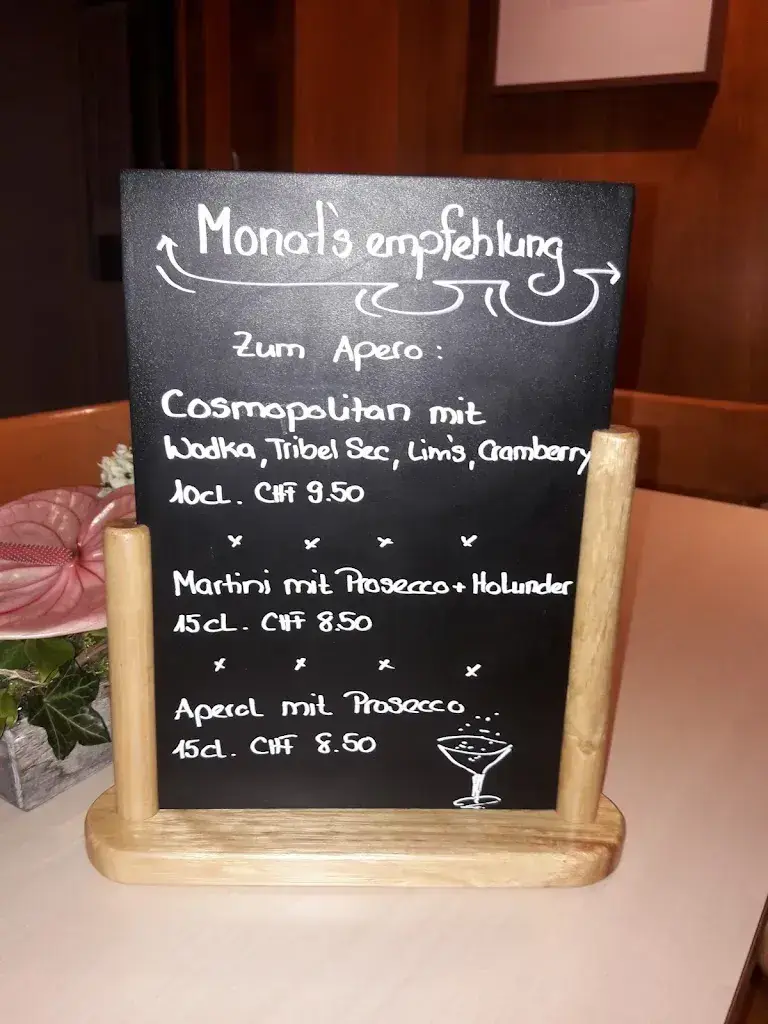 Monat's empfehlung
Zum Apero :
Cosmopolitan mit
Wodka, Tribel Sec, Lim's, Cramberry
10cl. CHF 9.50
x x x x
Martini mit Prosecco + Holunder
15cl. CHF 8.50
x x x x
Aperol mit Prosecco
15cl. CHF 8.50